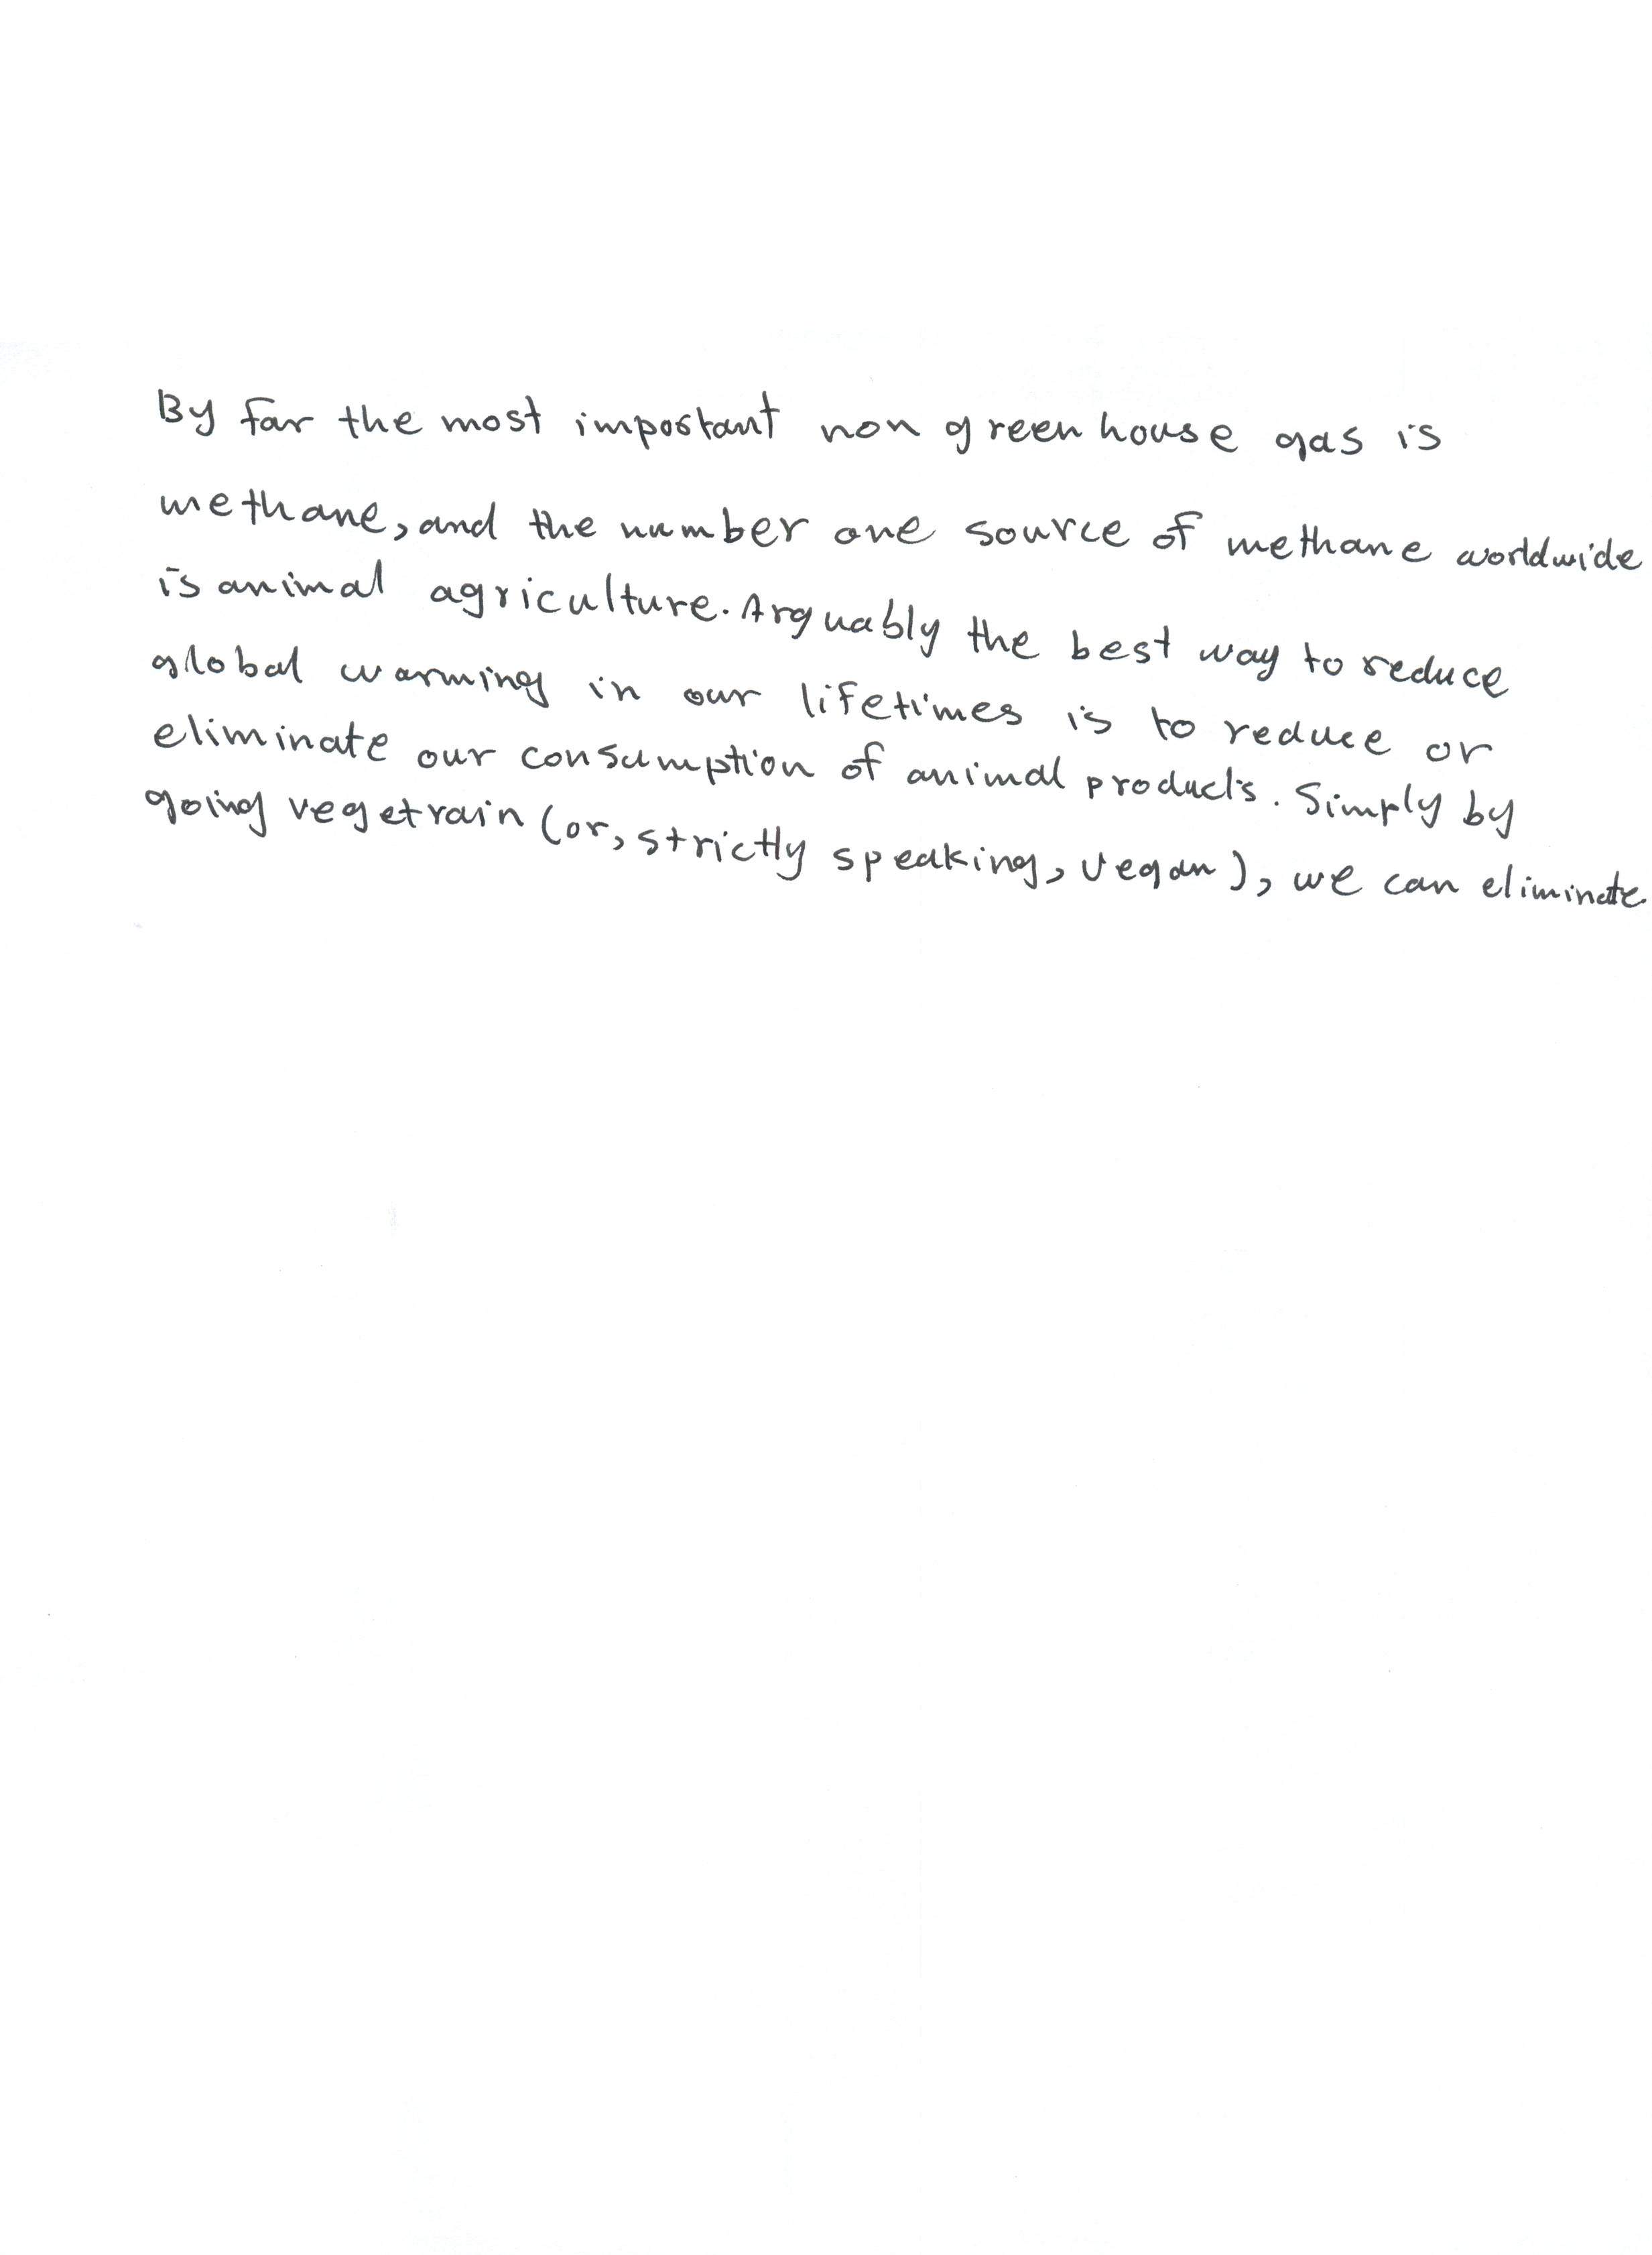 By far the most important non greenhouse gas is
methane, and the number one source of methane worldwide
is animal agriculture. Arguably the best way to reduce
global warming in our lifetimes is to reduce or
eliminate our consumption of animal products. Simply by
going vegetrain (or, strictly speaking, vegan), we can eliminate